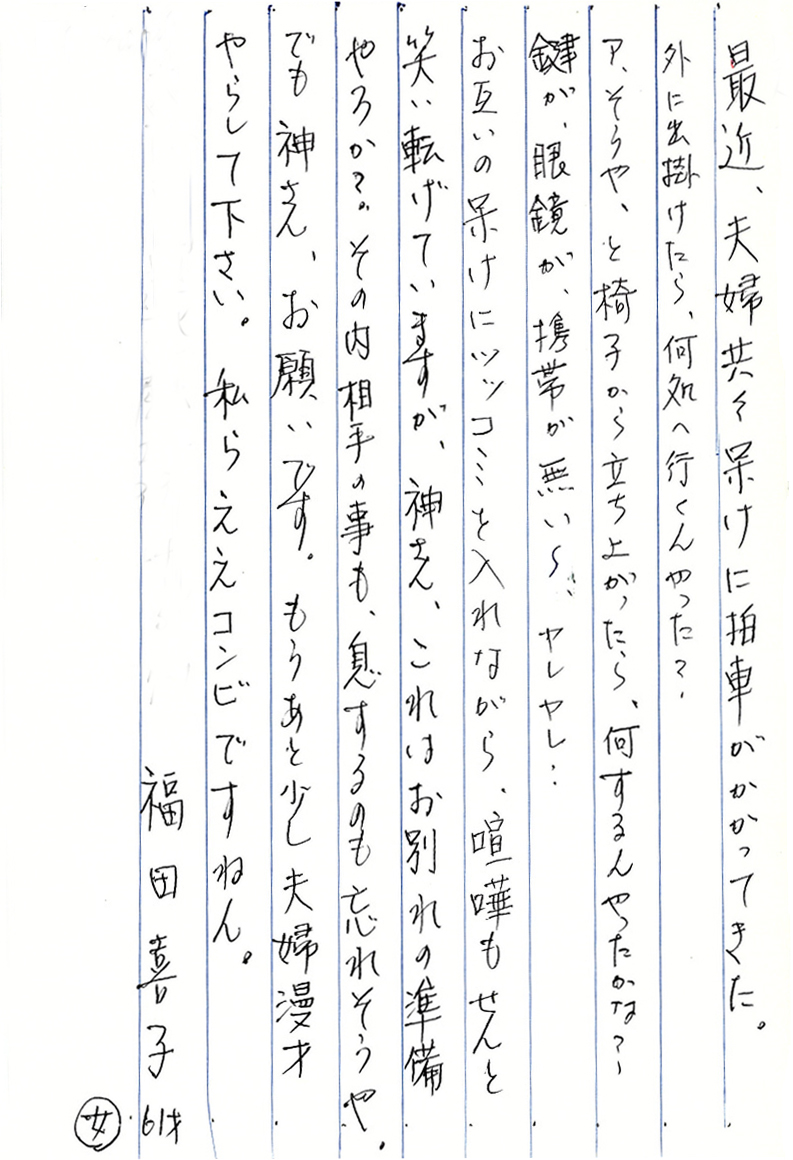 最近、夫婦共々呆けに拍車がかかってきた。
外に出掛けたら、何処へ行くんやった？
ア、そうや、と椅子から立ち上がったら、何するんやったかな？
鍵が、眼鏡が、携帯が無い〜、ヤレヤレ…
お互いの呆けにツッコミを入れながら、喧嘩もせんと
笑い転げていますが、神さん、これはお別れの準備
やろか？。その内相手の事も、息するのも忘れそうや。
でも神さん、お願いです。もうあと少し夫婦漫才
やらして下さい。私らええコンビですねん。
福田喜子 61才 女